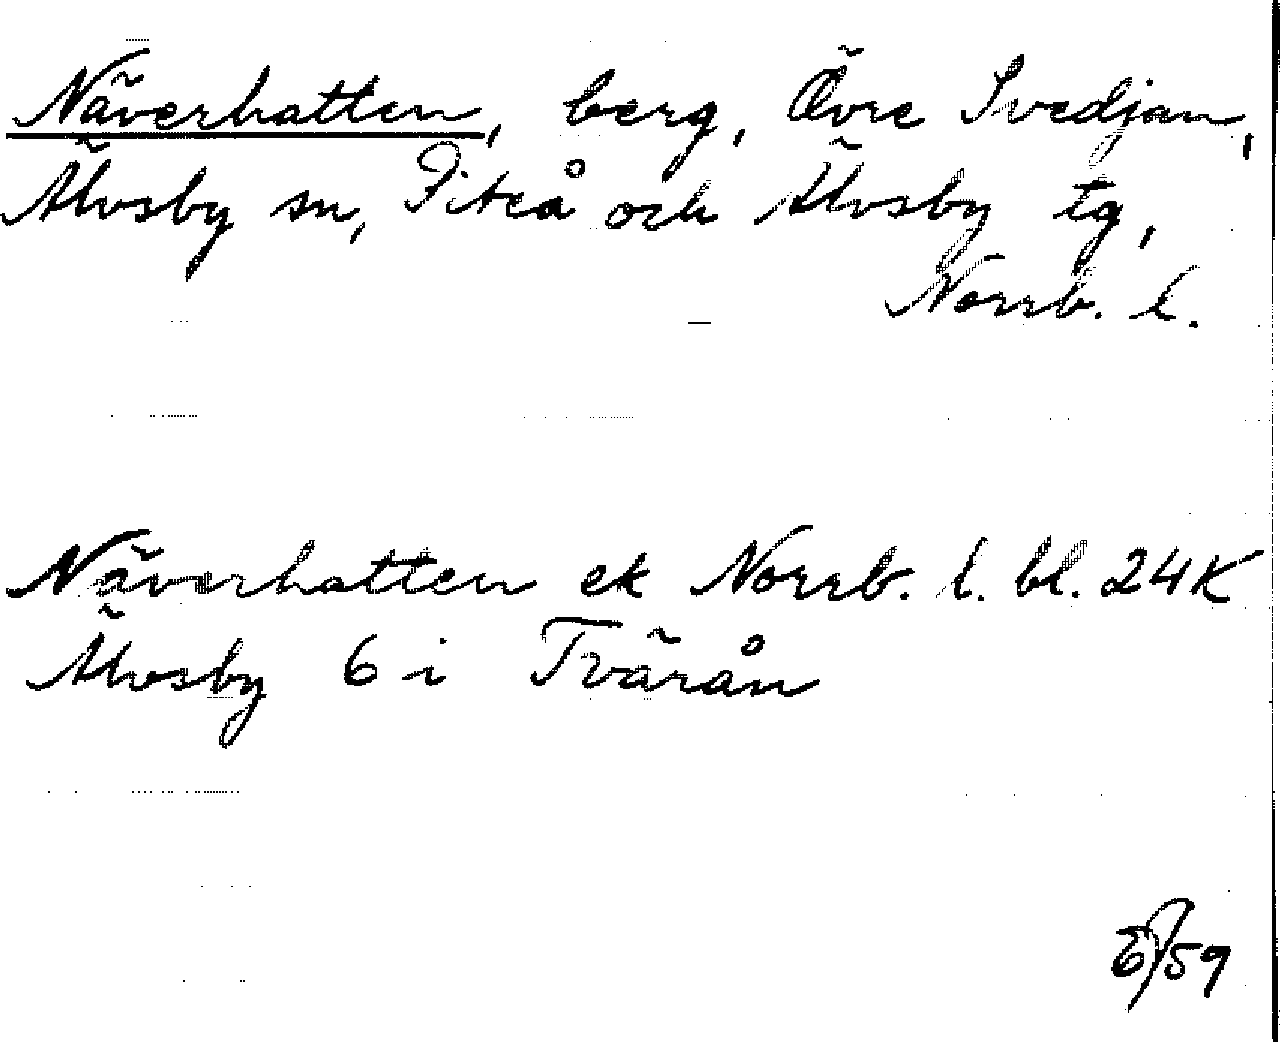 Näverhatten, berg, Övre Svedjan,
Älvsby sn, Piteå och Älvsby tg,
Norrb. l.
Näverhatten ek Norrb. l. bl. 24K
Älvsby 6 i Tvärån
59